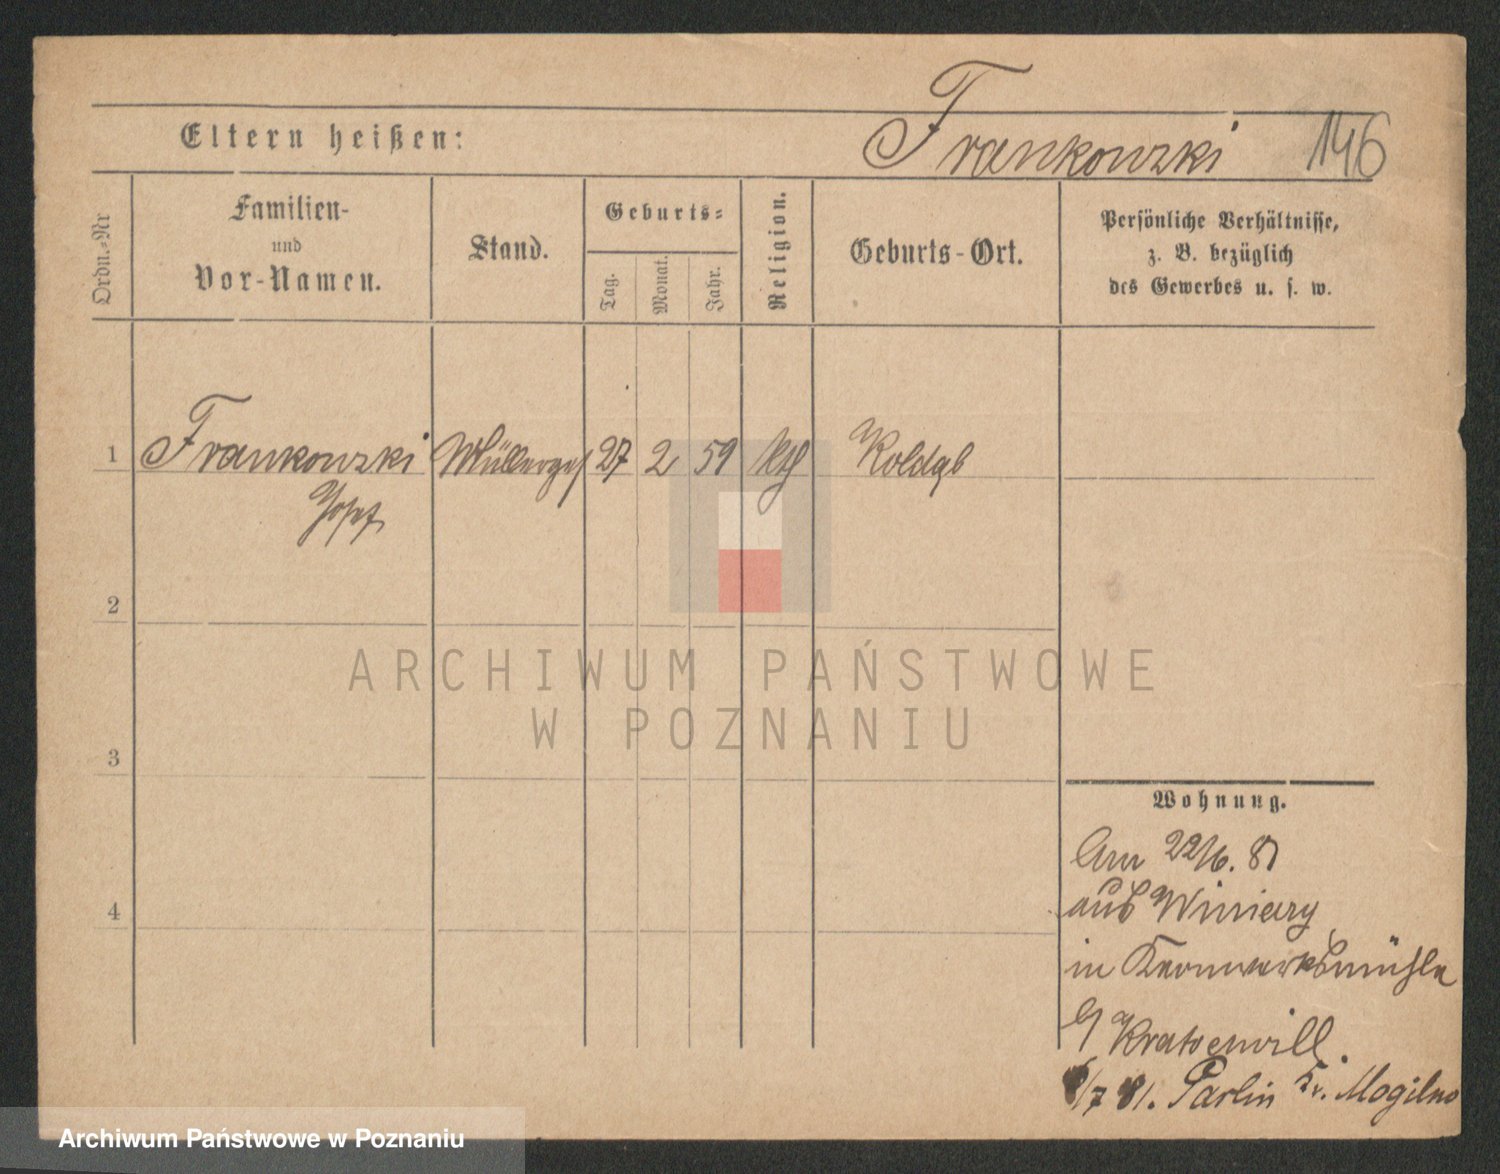 Eltern heißen:
Frankowski 146
Ordn.-Nr
Familien-
und
Vor-Namen.
Stand.
Geburts-
Tag.
Monat.
Jahr.
Religion.
Geburts-Ort.
Persönliche Verhältnisse,
z. B. bezüglich
des Gewerbes u. s. w.
1 Frankowski Müllerges 27 2 59 kth
Josef
2
3
4
Wohnung.
Am 22/6. 81
aus Winiary
in Kernwerksmühle
b/ Kratochwill.
/7 81. Parlin Kr. Mogilno
ARCHIWUM PAŃSTWOWE
W POZNANIU
Archiwum Państwowe w Poznaniu